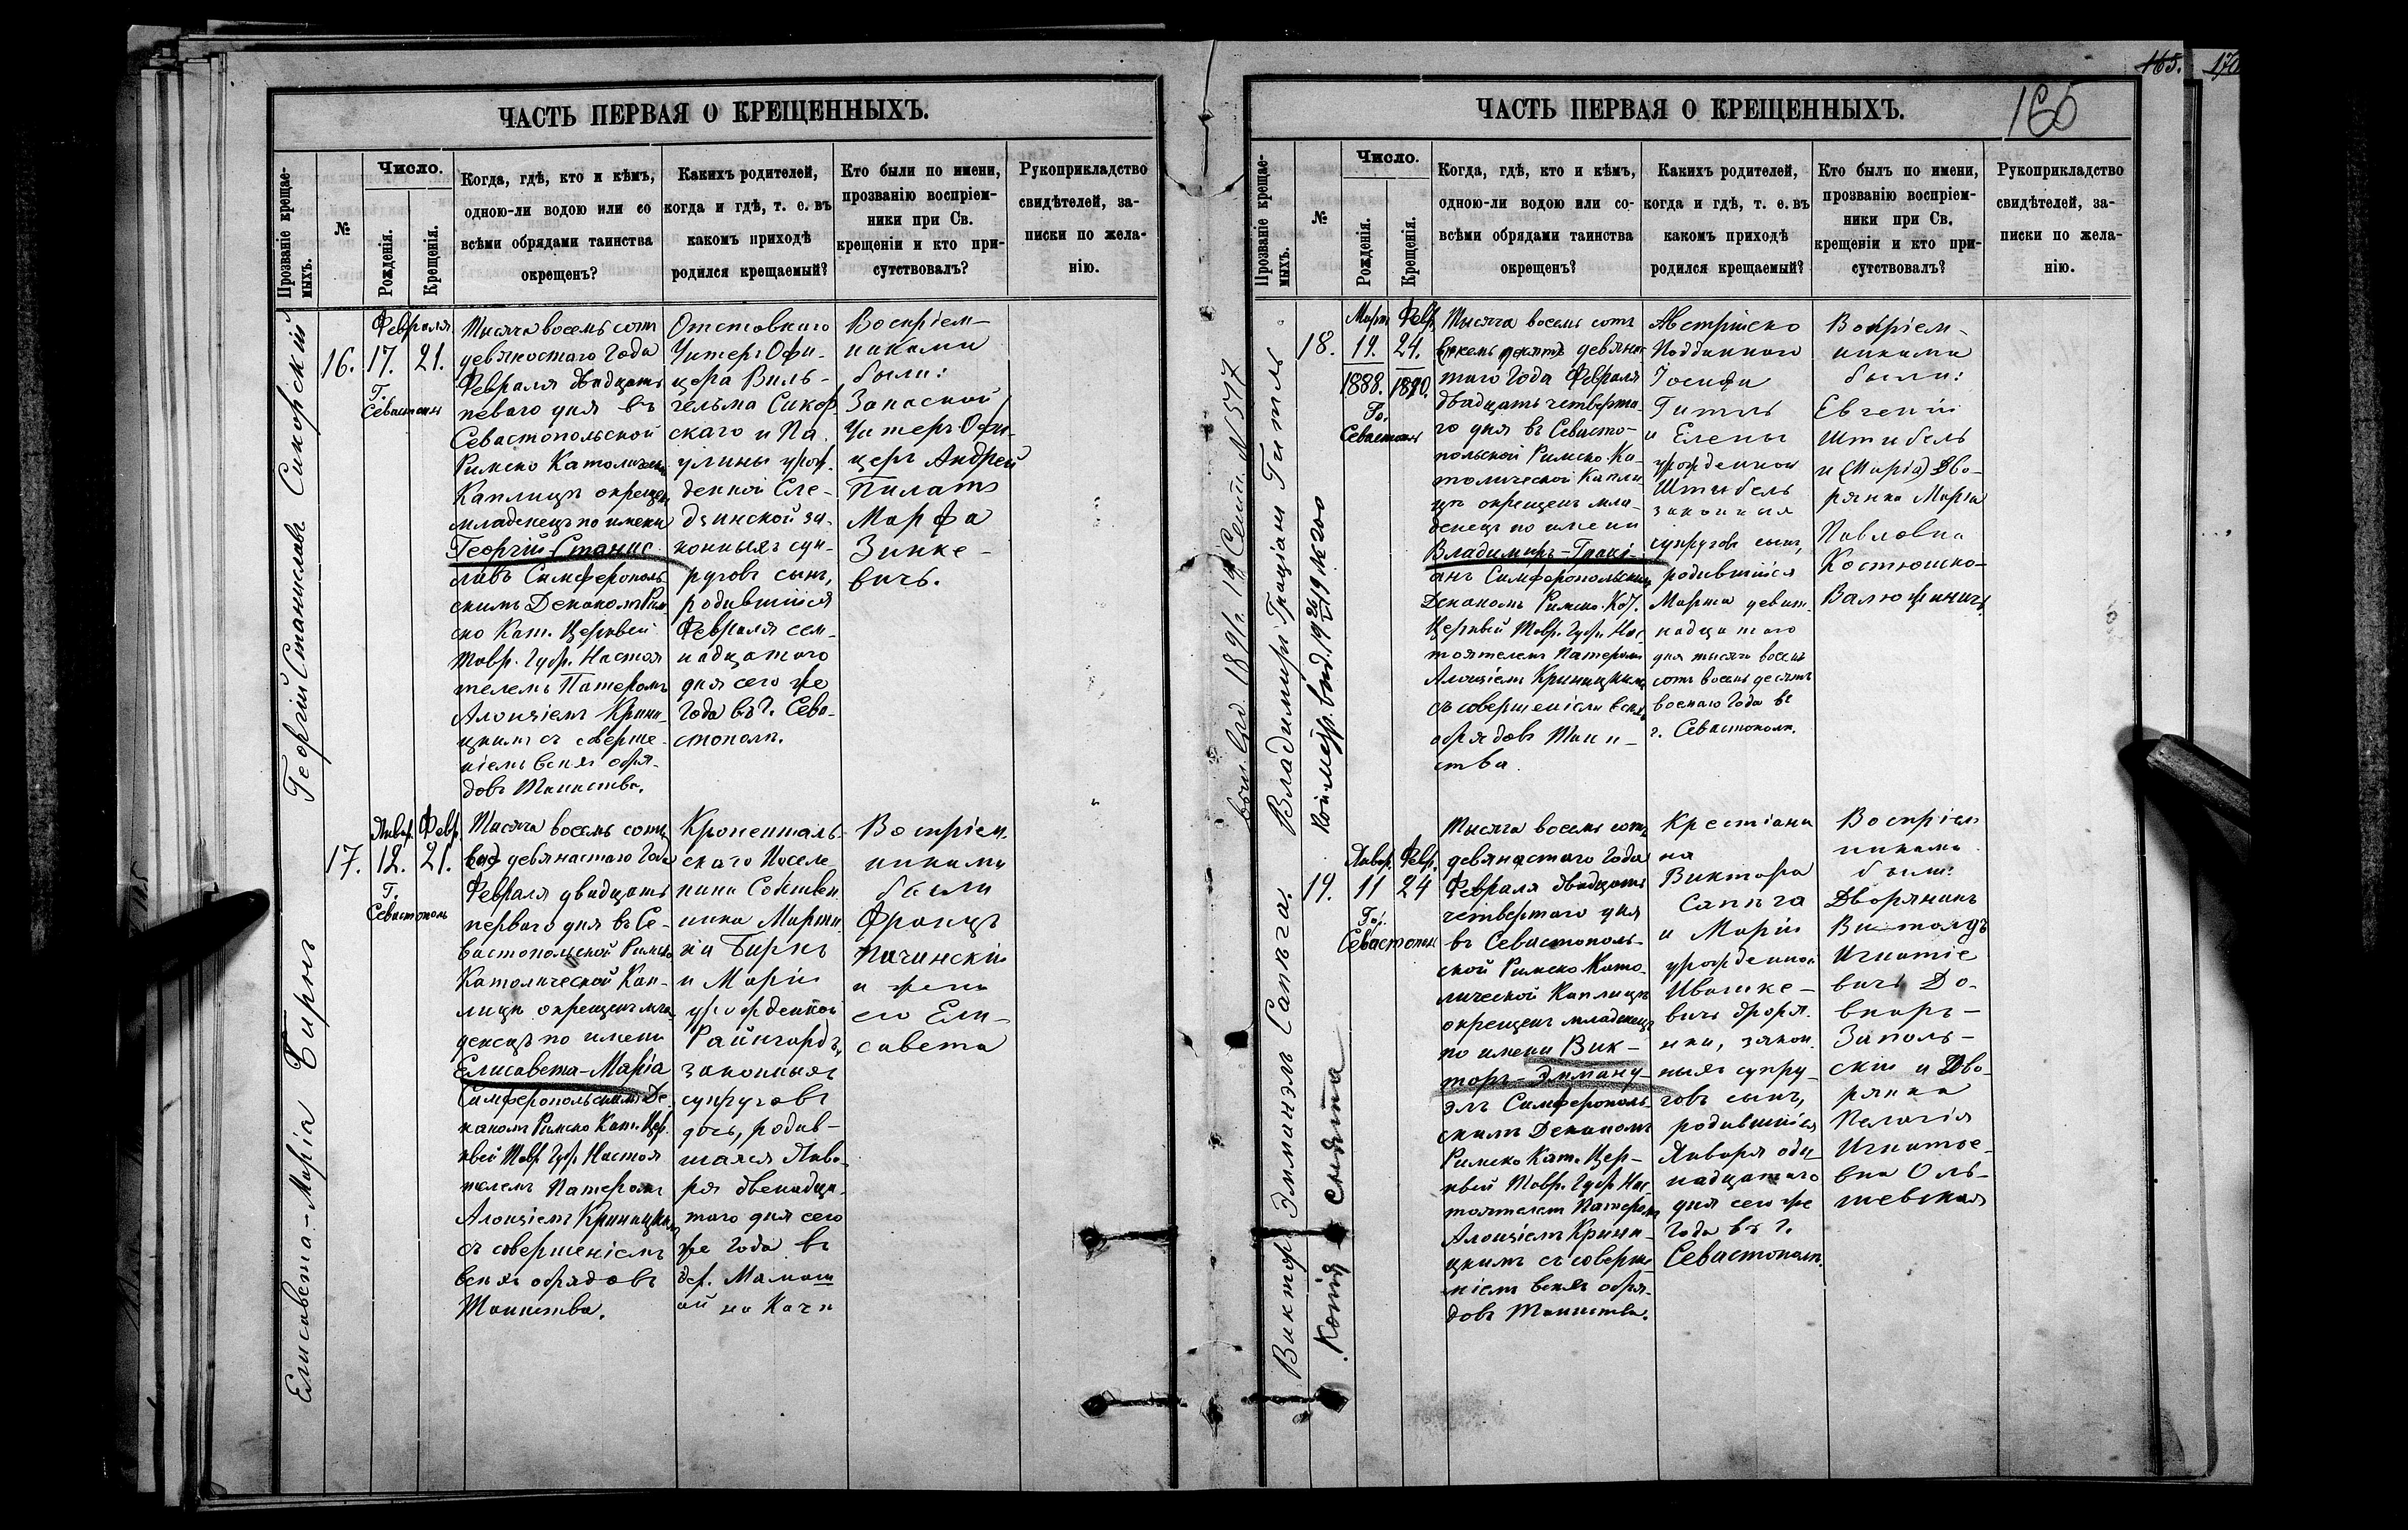 165.
170
ЧАСТЬ ПЕРВАЯ О КРЕЩЕННЫХЪ.
Прозваніе крещае-
мыхъ.
№
Число.
Рожденія.
Крещенія.
Когда, гдѣ, кто и кѣмъ,
одною-ли водою или со
всѣми обрядами таинства
окрещенъ?
Какихъ родителей,
когда и гдѣ, т. е. въ
какомъ приходѣ
родился крещаемый?
Кто были по имени,
прозванію воспріем-
ники при Св.
крещеніи и кто при-
сутствовалъ?
Рукоприкладство
свидѣтелей, за-
писки по жела-
нію.
Георгій Станиславъ Сикорскій
16.
Февраля
17. 21.
Г.
Севастополь
Тысяча восемь сотъ
девяностаго Года
Февраля двадцать
перваго дня въ
Севастопольской
Римско Католической
Каплицѣ окрещен
младенецъ по имени
Георгій-Станис
лавъ Симферополь
скимъ Деканомъ Рим
ско Кат. Церквей
Тавр. Губ. Настоя
телемъ Патеромъ
Алоизіемъ Крини
цкимъ съ соверше
ніемъ всѣхъ обря-
довъ Таинства.
Отставнаго
Унтеръ Офи-
цера Виль-
гельма Сикор
скаго и Па
улины урож.
денной Сле-
дзинской за-
конныхъ суп-
руговъ сынъ,
родившійся
Февраля сем-
надцатого
дня сего же
Года въ Г. Сева-
стополѣ.
Воспріем-
никами
были:
Запасной
Унтеръ Офи-
церъ Андрей
Пилатъ
Марфа
Зинке-
вичъ.
Елисавета-Марія Бирнъ
17.
Январ. Февр.
12. 21.
Г.
Севастополь
Тысяча восемь сотъ
девяностаго Года
Февраля двадцать
перваго дня въ Се-
вастопольской Римско
Католической Кап-
лицѣ окрещенъ мла-
денецъ по имени
Елисавета-Марія
Симферопольскимъ Де
каномъ Римско Кат. Цер.
квей Тавр. Губ. Настоя
телемъ Патеромъ
Алоизіемъ Криницким
съ совершеніемъ
всѣхъ обрядовъ
Таинства.
Кроненталь-
скаго Поселе-
нина Собствен
ника Марти
на Бирнъ
и Маріи
урожденной
Райнгардъ,
законныхъ
супруговъ
дочь, родив-
шаяся Янва-
ря двенадца-
таго дня сего
же Года въ
дер. Мамаш
ай на Качѣ
Воспріем-
никами
были
Францъ
Пачинскій
и жена
его Ели-
савета
165
ЧАСТЬ ПЕРВАЯ О КРЕЩЕННЫХЪ.
Прозваніе крещае-
мыхъ.
№
Число.
Рожденія.
Крещенія.
Когда, гдѣ, кто и кѣмъ,
одною-ли водою или со-
всѣми обрядами таинства
окрещенъ?
Какихъ родителей,
когда и гдѣ, т. е. въ
какомъ приходѣ
родился крещаемый?
Кто былъ по имени,
прозванію воспріем-
ники при Св.
крещеніи и кто при-
сутствовалъ?
Рукоприкладство
свидѣтелей, за-
писки по жела-
нію.
1891 г. 14 Сент. № 517
Владимиръ Граціанъ Гитль
18.
Март Февр.
19. 24.
1888. 1890.
Го.
Севастополь
Тысяча восемь сотъ
девянос
таго Года Февраля
двадцать четверта-
го дня въ Севасто-
польской Римско Ка-
толической Капли
цѣ окрещенъ мла-
денецъ по имени
Владимиръ-Граці-
анъ Симферопольским
Деканомъ Римско. Кат.
Церквей Тавр. Губ. Нас-
тоятелемъ Патеромъ
Алоизіемъ Криницкимъ
съ совершеніемъ всѣхъ
обрядовъ Таин-
ства.
Австрійско
Подданнаго
Іосифа
Гитль
и Елены
урожденной
Штибель
законныхъ
супруговъ сынъ,
родившійся
Марта девят-
надцатого
дня тысяча восемь
сотъ восемь десятъ
восьмаго Года въ
г. Севастополѣ.
Воспріем-
никами
были:
Евгеній
Штибель
и (Марія) Дво-
рянка Марія
Павловна
Костюшко-
Валюжиничъ
Викторъ Эммануэлъ Сапѣга.
Копія снята
19.
Январ. Февр.
11 24
Го.
Севастополь
Тысяча восемь сотъ
девяностаго Года
Февраля двадцать
четвертаго дня
въ Севастополь-
ской Римско Като-
лической Каплицѣ
окрещенъ младенецъ
по имени Вик-
торъ-Эмману-
элъ Симферополь-
скимъ Деканомъ
Римско Кат. Цер-
квей Тавр. Губ. Нас
тоятелемъ Патером
Алоизіемъ Крини-
цкимъ съ соверше
ніемъ всѣхъ обря-
довъ Таинства.
Крестіани
на
Виктора
Сапѣга
и Маріи
урожденной
Ивашке-
вичъ дворя.
нки, закон.
ныхъ супру-
говъ сынъ,
родившійся
Января оди-
надцатаго
дня сего же
Года въ г.
Севастополѣ.
Воспріем
никами
были:
Дворянинъ
Витолдъ
Игнатіе
вичъ До-
вноръ-
Заполь-
скій и Дво-
рянка
Пелагія
Игнатье-
вна Оль-
шевская